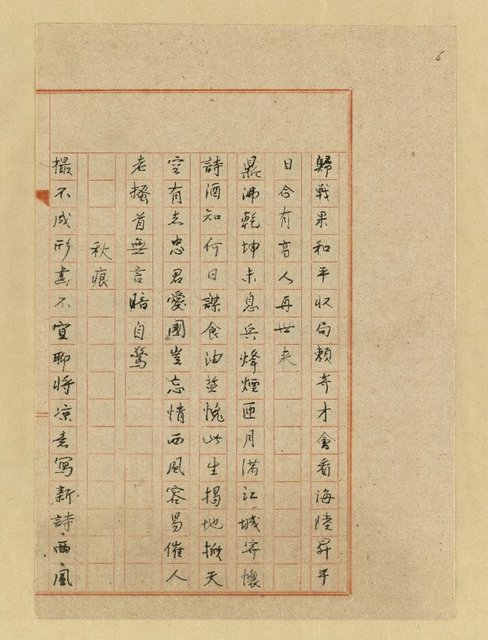 6
歸戰果和平收局賴奇才會看海陸昇平
日合有高人再世來
鼎沸乾坤未息兵烽煙匝月滿江城寄懷
詩酒知何日謀食油鹽愧此生揭地掀天
空有志忠君愛國豈忘情西風容易催人
老搔首無言暗自驚
秋痕
撮不成形畫不宜聊將凉意寫新詩西風